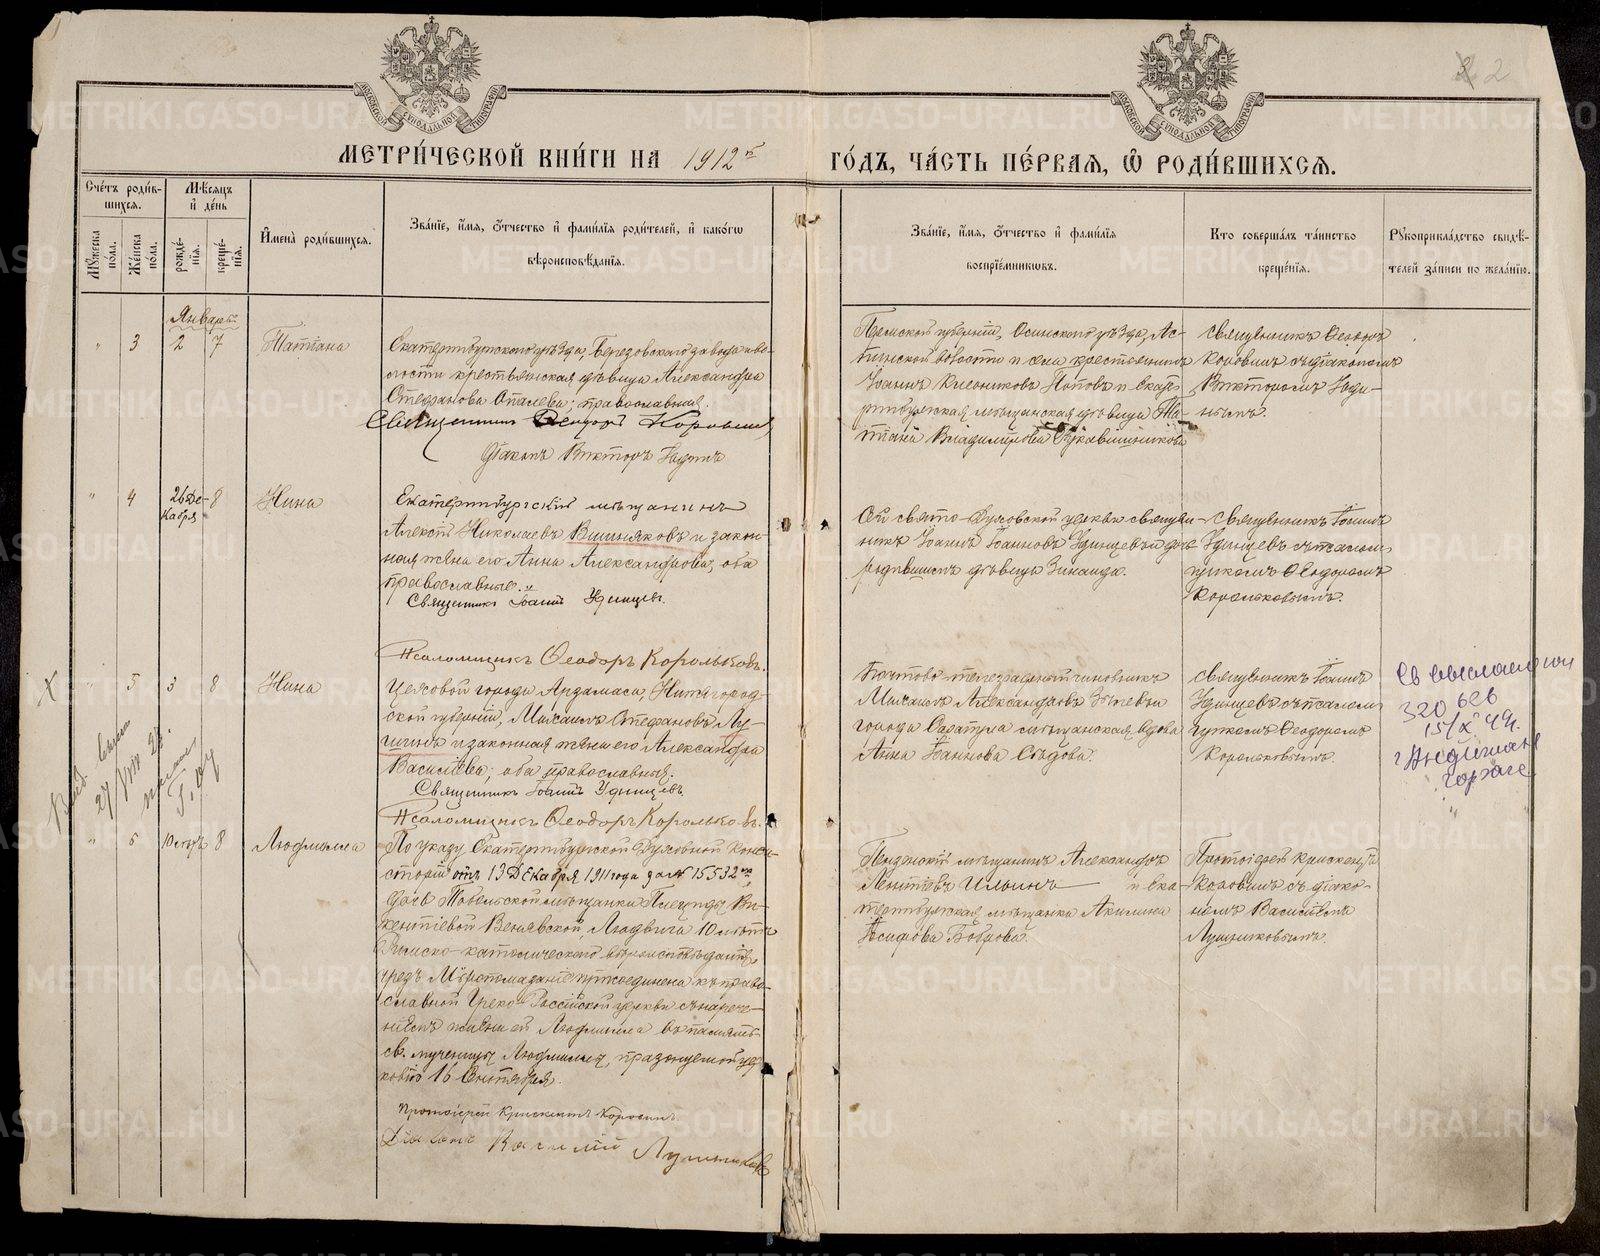 МЕТРИ́ЧЕСКОЙ КНИ́ГИ НА 1912 г
ГО́ДЪ, ЧА́СТЬ ПЕ́РВАЯ, Ѿ РОДИ́ВШИХСЯ.
2
Сче́тъ роди́в-
шихся.
Му́жеска по́ла.
Же́нска по́ла.
Мѣ́сяцъ и де́нь
рожде́-
нїя.
креще́-
нїя.
Имена̀ роди́вшихся.
Зва́нїе, и́мя, о́тчество и фами́лїя роди́телей, и како́гѡ
вѣроисповѣ́данїя.
Зва́нїе, и́мя, о́тчество и фами́лїя
воспрїе́мниковъ.
Кто соверша́лъ та́инство
креще́нїя.
Рукоприкла́дство свидѣ́-
телей за́писи по жела́нїю.
Январь
" 3 2 7 Татіана
Екатеринбургскаго уѣзда, Березовскаго завода и во-
лости крестьянская дѣвица Александра
Стефанова Опалева; православная.
Священникъ Ѳеодоръ Коровинъ
Діаконъ Викторъ
Пермской губерніи, Осинскаго уѣзда, Ас-
пинской волости и села крестьянинъ
Іоаннъ Поповъ и Екате-
ринбургская мѣщанская дѣвица Та-
тіана Владимірова Рукавишникова
Священникъ Ѳеодоръ
Коровинъ съ діакономъ
Викторомъ
" 4 26 Де-
кабря 8 Нина
Екатеринбургскій мѣщанинъ
Алексѣй Николаевъ Вишняковъ и закон-
ная жена его Анна Александрова, оба
православные.
Священникъ Іоаннъ Удинцевъ.
Псаломщикъ Ѳеодоръ Корольковъ.
Свято-Духовской церкви священ-
никъ Іоаннъ Іоанновъ Удинцевъ и дочь
дѣвица Зинаида.
Священникъ Іоаннъ
Удинцевъ съ псалом-
щикомъ Ѳеодоромъ
Корольковымъ.
" 5 3 8 Нина
Цеховой города Арзамаса, Нижегород-
ской губерніи, Михаилъ Стефановъ Лу-
и законная жена его Александра
Васильева; оба православные.
Священникъ Іоаннъ Удинцевъ.
Псаломщикъ Ѳеодоръ Корольковъ.
Почтово-телеграфный чиновникъ
Михаилъ Александровъ и
города Саратова мѣщанская вдова
Анна Іоаннова Сѣдова.
Священникъ Іоаннъ
Удинцевъ съ псалом-
щикомъ Ѳеодоромъ
Корольковымъ.
Св выслано
320 628
15/X 49г.
г Андижан
горзагс
" 6 10 лѣтъ 8 Людмилла
По указу Екатеринбургской Духовной Конси-
сторіи отъ 13 Декабря 1911 года за № 15532
дочь Тобольской мѣщанки Ви-
кентіевой Людвига 10 лѣтъ
Римско-католическаго вѣроисповѣданія,
чрезъ Мѵропомазаніе присоединена къ право-
славной Греко-Россійской церкви съ нарече-
ніемъ имени ей Людмилла въ память
св. мученицы Людмиллы, празднуемой цер-
ковію 16 Сентября.
Протоіерей Крискентъ Коровинъ.
Діаконъ Василій Лушниковъ
Пензенскій мѣщанинъ Александръ
Леонтіевъ Ильинъ и ека-
теринбургская мѣщанка Акилина
Іосифова Боброва.
Протоіерей Крискентъ
Коровинъ съ діако-
номъ Василіемъ
Лушниковымъ.